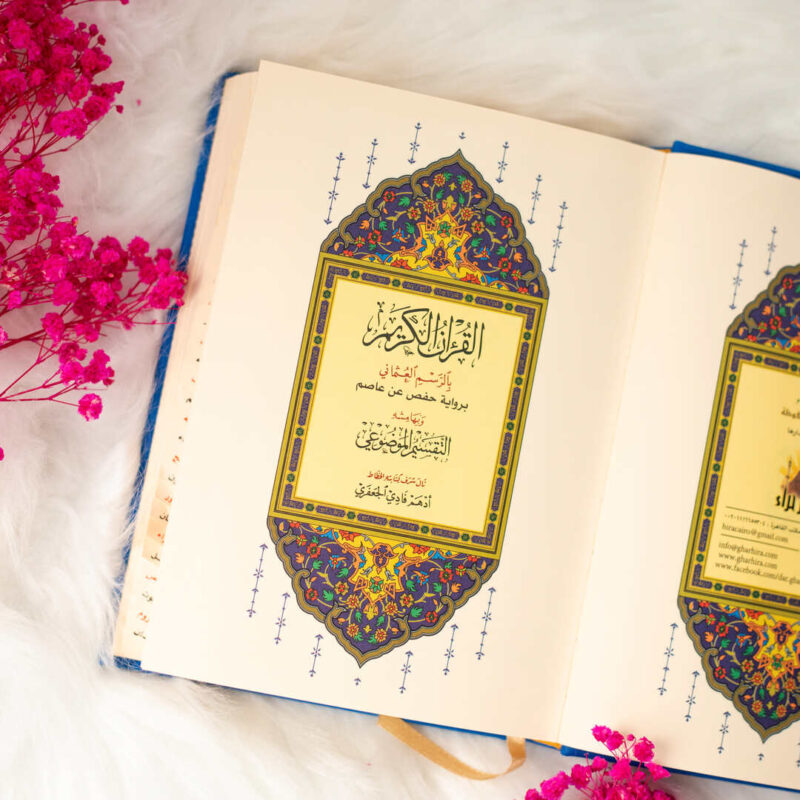 القرآن الكريم
بالرسم العثماني
برواية حفص عن عاصم
وبهامشه
التقسيم الموضوعي
نال شرف كتابته الخطاط
أدهم فادي الجعفري
hiracairo@gmail.com
info@gharhira.com
www.gharhira.com
www.facebook.com/dar.gha